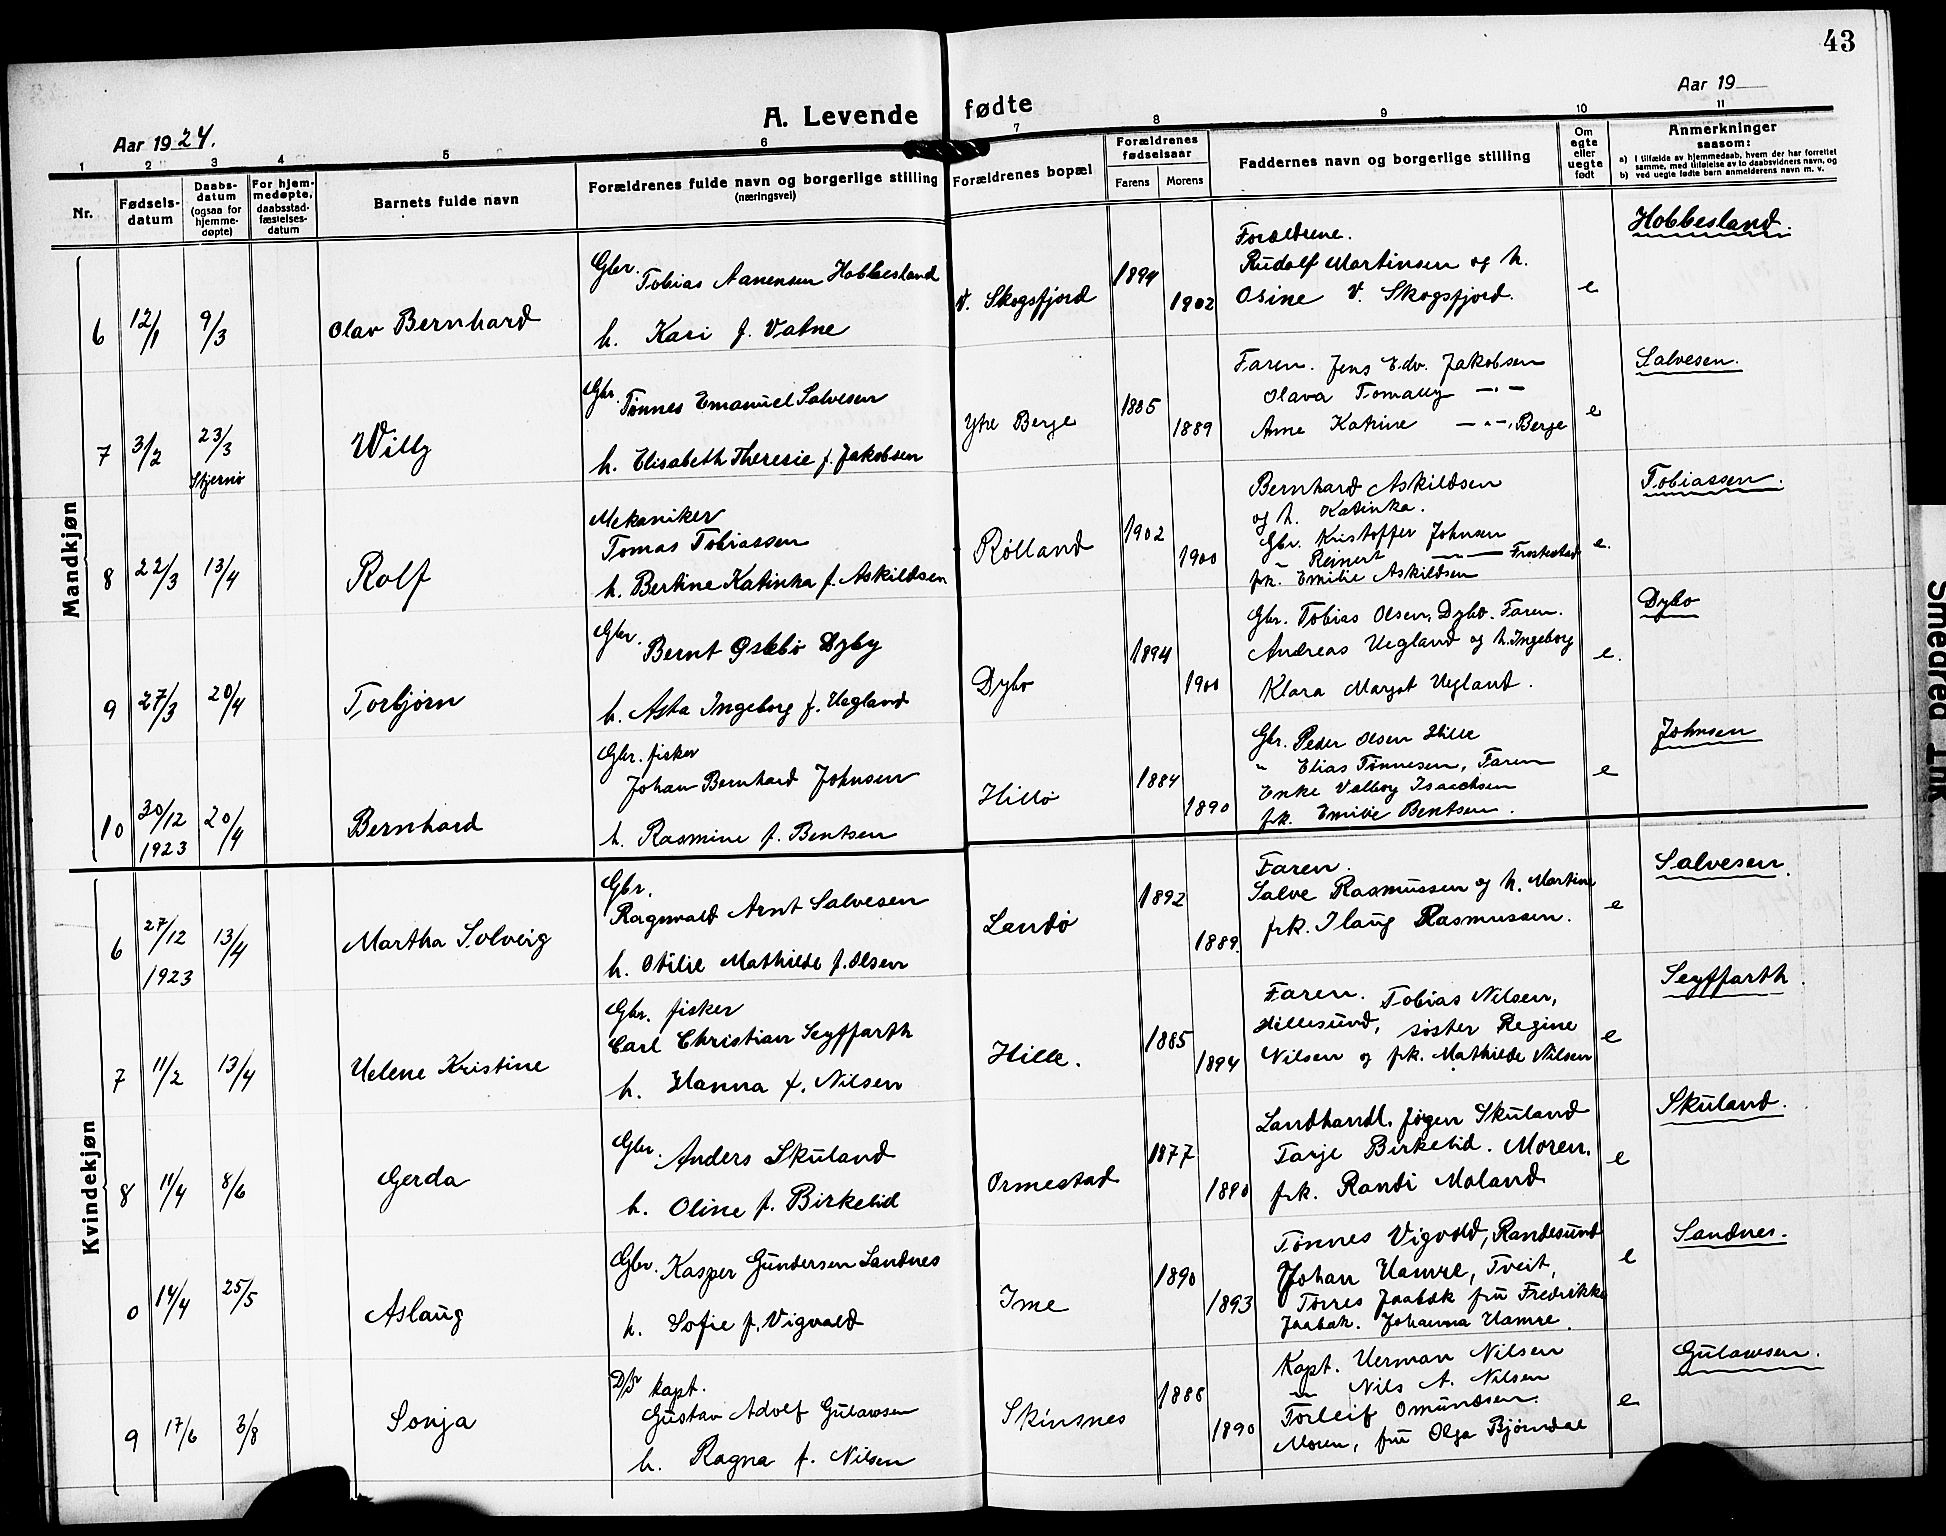 43
Aar 1924.
A. Levende fødte
Aar 19
1 2 3 4 5 6 7 8 9 10 11
Nr.
Fødsels-
datum
Daabs-
datum
(ogsaa for
hjemme-
døpte)
For hjem-
medøpte,
daabsstad-
fæstelses-
datum
Barnets fulde navn
Forældrenes fulde navn og borgerlige stilling
(næringsvei)
Forældrenes bopæl
Forældrenes
fødselsaar
Farens Morens
Faddernes navn og borgerlige stilling
Om
egte
eller
uegte
født
Anmerkninger
saasom:
a) I tilfælde av hjemmedaab, hvem der har forrettet
samme, med tilføielse av to daabsvidners navn, og
b) ved uegte fødte barn anmelderens navn m. v.
Mandkjøn
6 12/1 9/3 Olav Bernhard
Gbr. Tobias Aanensen Hobbesland
h. Kari f. Vatne
V. Skogsfjord 1894 1902
Forældrene.
Rudolf Martinsen og h.
Osine V. Skogsfjord.
e
Hobbesland.
7 3/2 23/3
Skjernø
Willy
Gbr. Tønnes Emanuel Salvesen
h. Elisabeth Theresie f. Jakobsen
Ytre Berge 1885 1889
Faren. Jens Edv. Jakobsen
Olava Tomally —"—
Anne Katrine —"—, Berge
e
Salvesen.
8 22/3 13/4 Rolf
Mekaniker
Tomas Tobiassen
h. Bertine Katinka f. Askildsen
Rølland 1902 1900
Bernhard Askildsen
og h. Katinka.
Gbr. Kristoffer Johnsen
" Reinert —"— Frostestad
frk. Emilie Askildsen
e.
Tobiassen.
9 27/3 20/4 Torbjørn
Gbr. Bernt Oslebø Dyby
h. Asta Ingeborg f. Uegland
Dybo 1894 1900
Gbr. Tobias Olsen, Dybo. Faren.
Andreas Uegland og h. Ingeborg
Klara Margot Uegland.
e.
Dybo
10 30/12
1923
20/4 Bernhard
Gbr. fisker
Johan Bernhard Johnsen
h. Rasmine f. Bentsen
Hillø 1884 1890
Gbr. Peder Olsen Hille
" Elias Tønnesen, Faren
Enke Valborg Isaachsen
frk. Emilie Bentsen.
e
Johnsen
Kvindekjøn
6 27/12
1923
13/4 Martha Solveig
Gbr.
Ragnvald Arnt Salvesen
h. Otilie Mathilde f. Olsen
Landø 1892 1889.
Faren.
Salve Rasmussen og h. Martine
frk. Ilaug Rasmussen.
e
Salvesen.
7 11/2 13/4 Helene Kristine
Gbr. fisker
Carl Christian Seyffarth
h. Hanna f. Nilsen
Hille. 1885 1894
Faren. Tobias Nilsen,
Hillesund, søster Regine
Nilsen og frk. Mathilde Nilsen
e
Seyffarth.
8 11/4 8/6 Gerda
Gbr. Anders Skuland
h. Oline f. Birkelid
Ormestad 1877 1890
Landhandl. Jørgen Skuland
Tarje Birkelid. Moren.
frk. Randi Moland
e
Skuland.
0 14/4 25/5 Aslaug
Gbr. Kasper Gundersen Sandnes
h. Sofie f. Vigvald
Ime 1890 1893
Tønnes Vigvald, Randesund
Johan Hamre, Tveit,
Torres Jaabæk fru Fredrikke
Jaabæk. Johanna Hamre.
e
Sandnes.
9 17/6 3/8 Sonja
D/S kapt.
Gustav Adolf Gulawsen
h. Ragna f. Nilsen
Skinsnes 1888 1890
Kapt. Herman Nilsen
" Nils A. Nilsen
Torleif Omundsen.
Moren, fru Olga Bjørndal
e
Gulawsen.